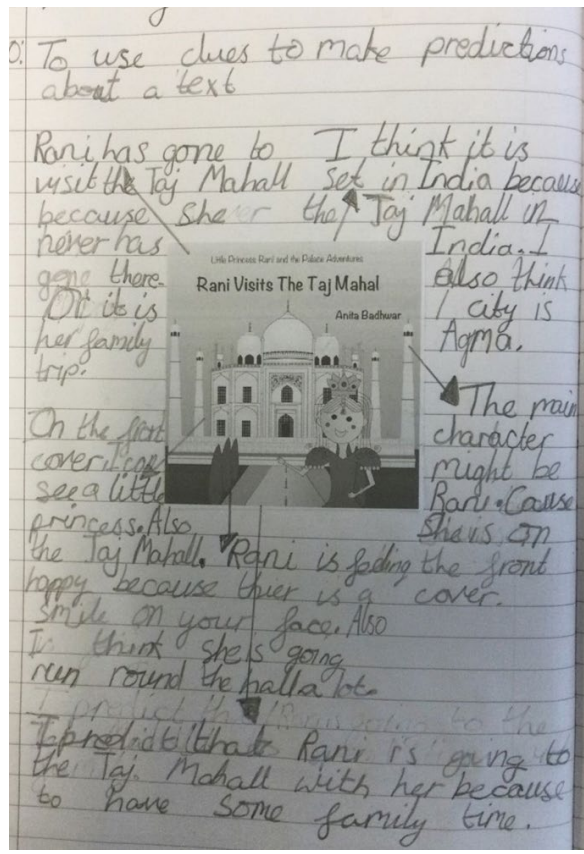 To use clues to make predictions
about a text
Rani has gone to
visit the Taj Mahall
because She
never has
gone there.
Or it is
her family
trip.
I think it is
set in India because
the Taj Mahall in
India. I
also think
city is
Agma.
Little Princess Rani and the Palace Adventures
Rani Visits The Taj Mahal
Anita Badhwar
The main
character
might be
Rani. Cause
She is on
the front
cover.
On the front
cover I can
see a little
princess. Also
the Taj Mahall.
Rani is feeling
happy because thier is a
smile on your face. Also
I think she is going
run round the hall a lot.
I predict that Rani is going to
the Taj Mahall with her because
to have some family time.